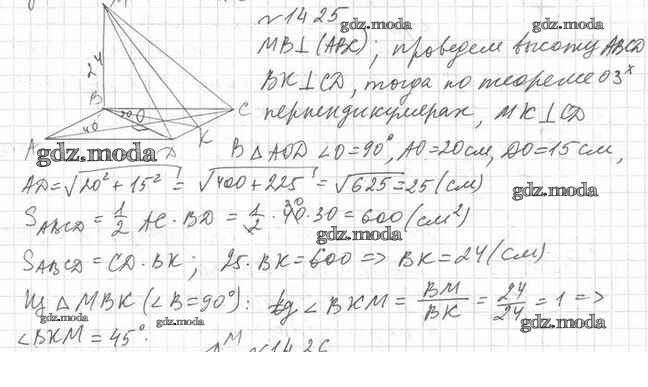 M
№1425
gdz.moda gdz.moda
MB⊥(ABC); проведем высоту ABCD
BK⊥CD, тогда по теореме о 3х
перпендикулярах, MK⊥CD
24
B
30
O
C
40
A
D
K
gdz.moda
В △AOD ∠O=90°, AO=20см, DO=15см,
AD=√20²+15² = √400+225 = √625=25(см)
gdz.moda
S ABCD = 1/2 AC·BD = 1/2·40·30=600(см²)
gdz.moda
S ABCD = CD·BK; 25·BK=600 => BK=24(см)
Из △MBK (∠B=90°): tg∠BKM = BM/BK = 24/24 = 1 =>
gdz.moda gdz.moda gdz.moda
∠BKM = 45°.
M
№1426